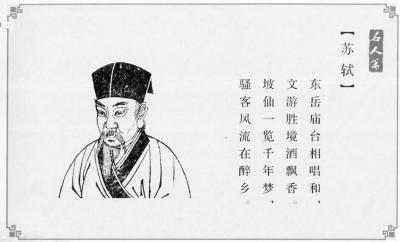 名人篇
【苏轼】
东岳庙台相唱和，
文游胜境酒飘香。
坡仙一览千年梦，
骚客风流在醉乡。